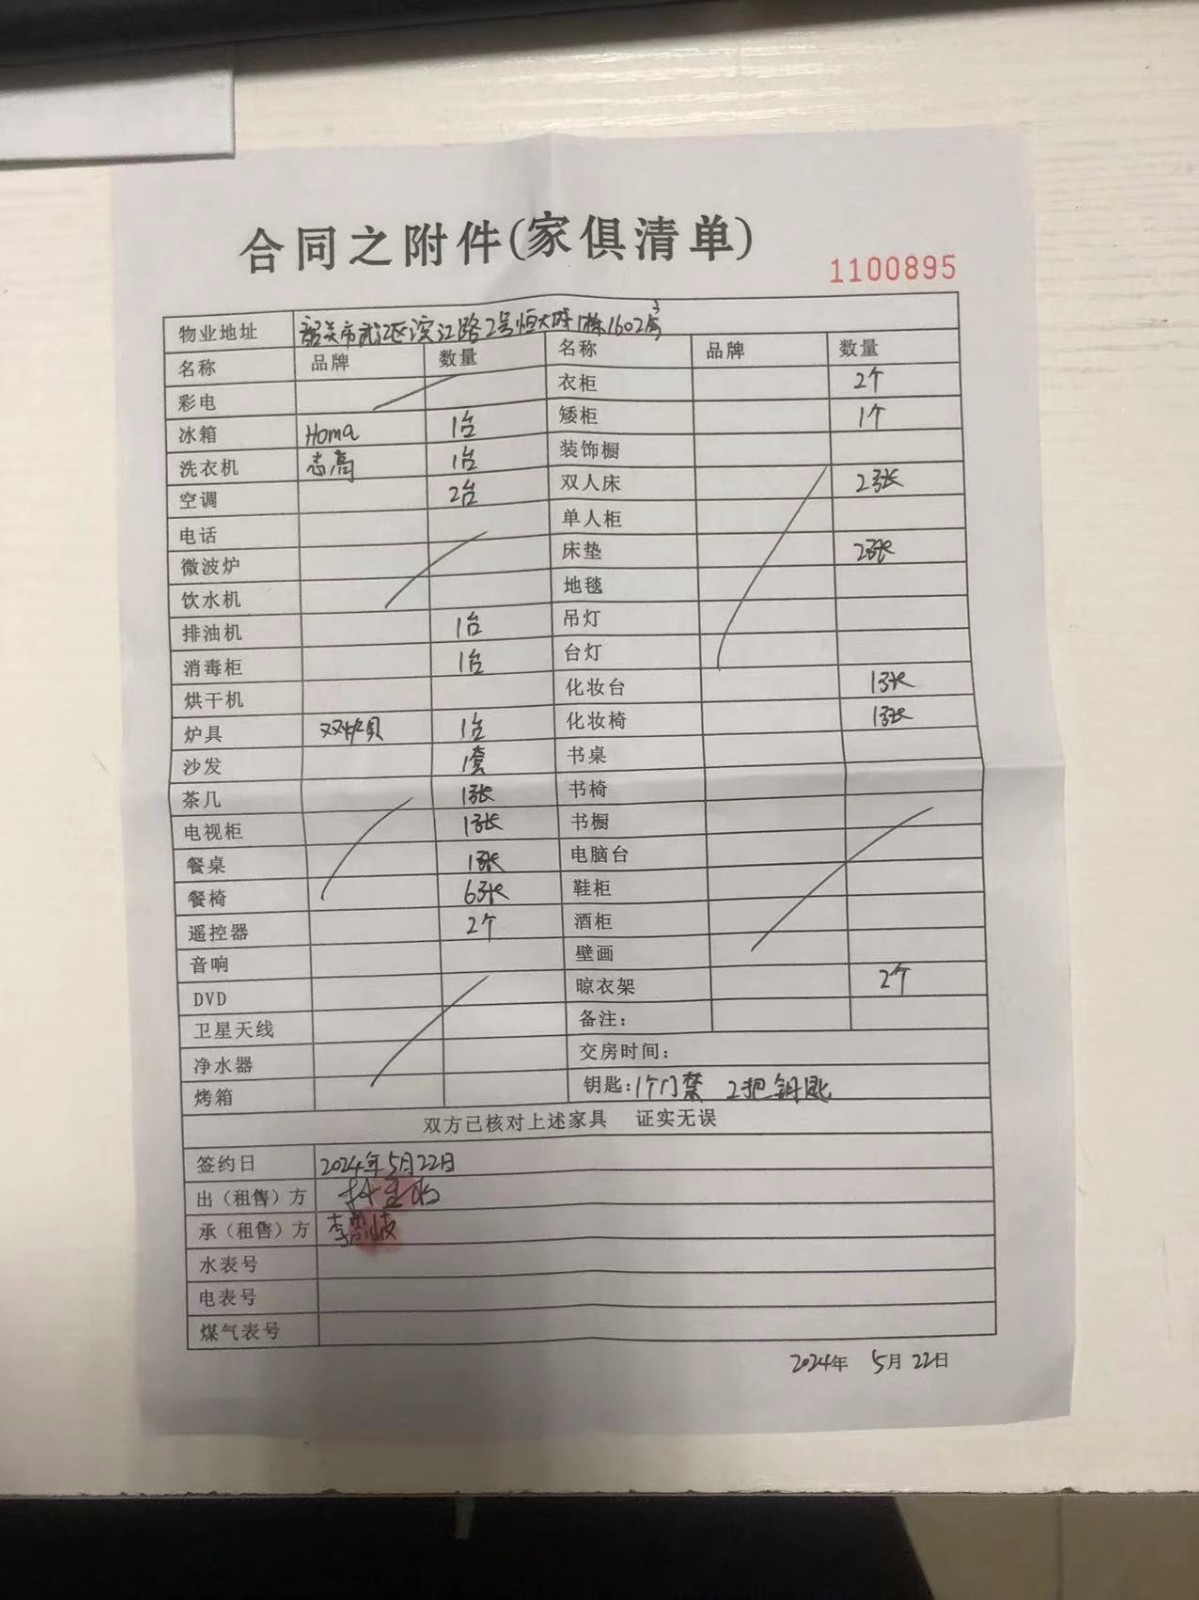 合同之附件(家俱清单)
1100895
物业地址 韶关市武江区滨江路2号恒大城1栋1602房
名称 品牌 数量 名称 品牌 数量
彩电 衣柜 2个
冰箱 Homa 1台 矮柜 1个
洗衣机 志高 1台 装饰橱
空调 2台 双人床 2张
电话 单人柜
微波炉 床垫 2张
饮水机 地毯
排油机 1台 吊灯
消毒柜 1台 台灯
烘干机 化妆台 1张
炉具 1台 化妆椅 1张
沙发 1套 书桌
茶几 1张 书椅
电视柜 1张 书橱
餐桌 1张 电脑台
餐椅 6张 鞋柜
遥控器 2个 酒柜
音响 壁画
DVD 晾衣架 2个
卫星天线 备注:
净水器 交房时间:
烤箱 钥匙:1个门禁 2把钥匙
双方已核对上述家具 证实无误
签约日 2024年5月22日
出(租售)方
承(租售)方 李
水表号
电表号
煤气表号
2024年 5月 22日